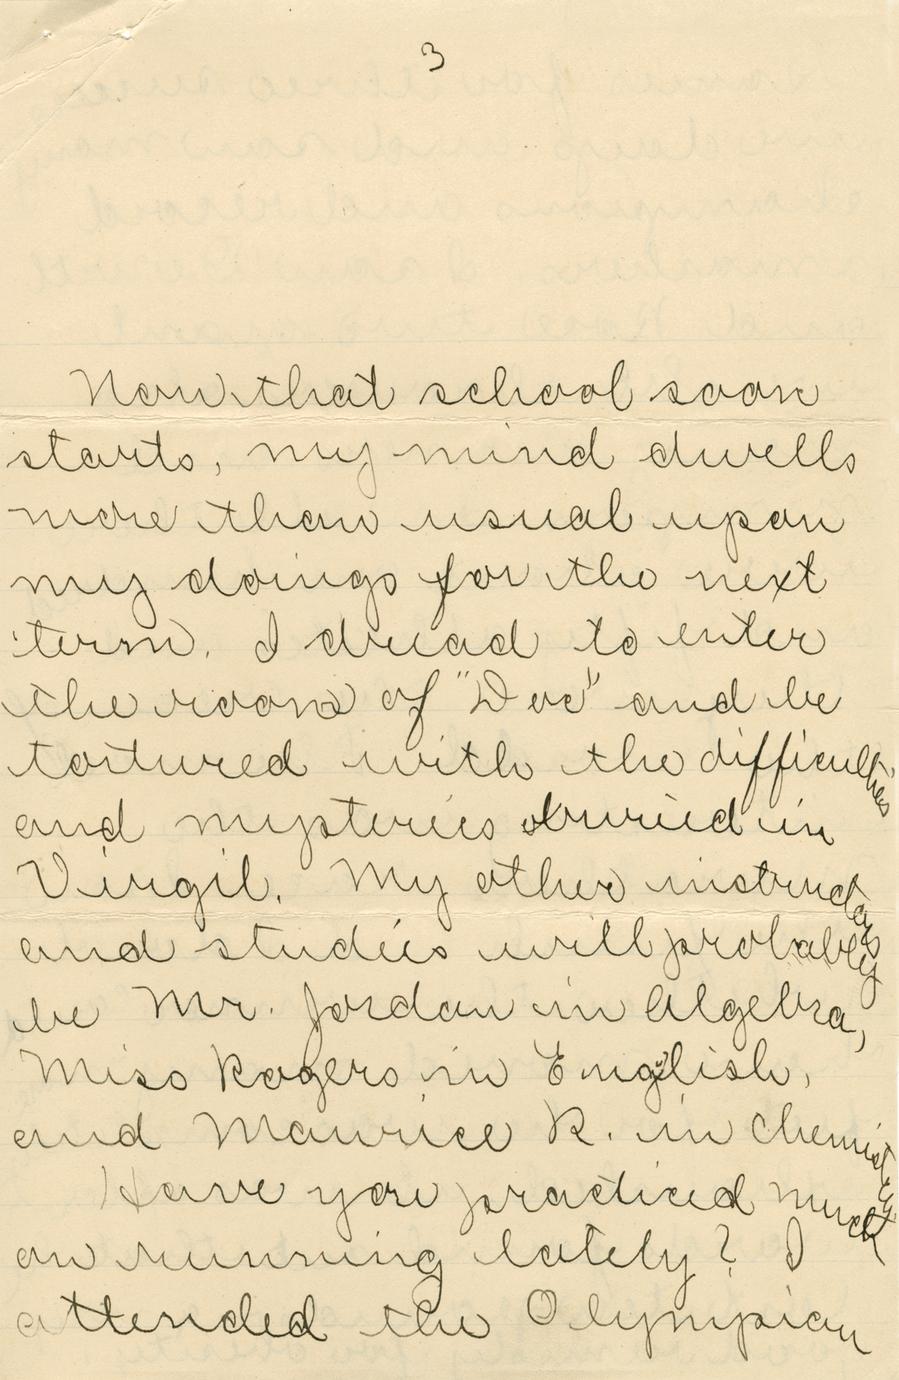 3
Now that school soon
starts, my mind dwells
more than usual upon
my doings for the next
term. I dread to enter
the room of "Doc" and be
tortured with the difficulties
and mysteries buried in
Virgil. My other instructors
and studies will probably
be Mr. Jordan in Algebra,
Miss Rogers in English,
and Maurice R. in Chemistry
Have you practiced much
on running lately? I
attended the Olympian